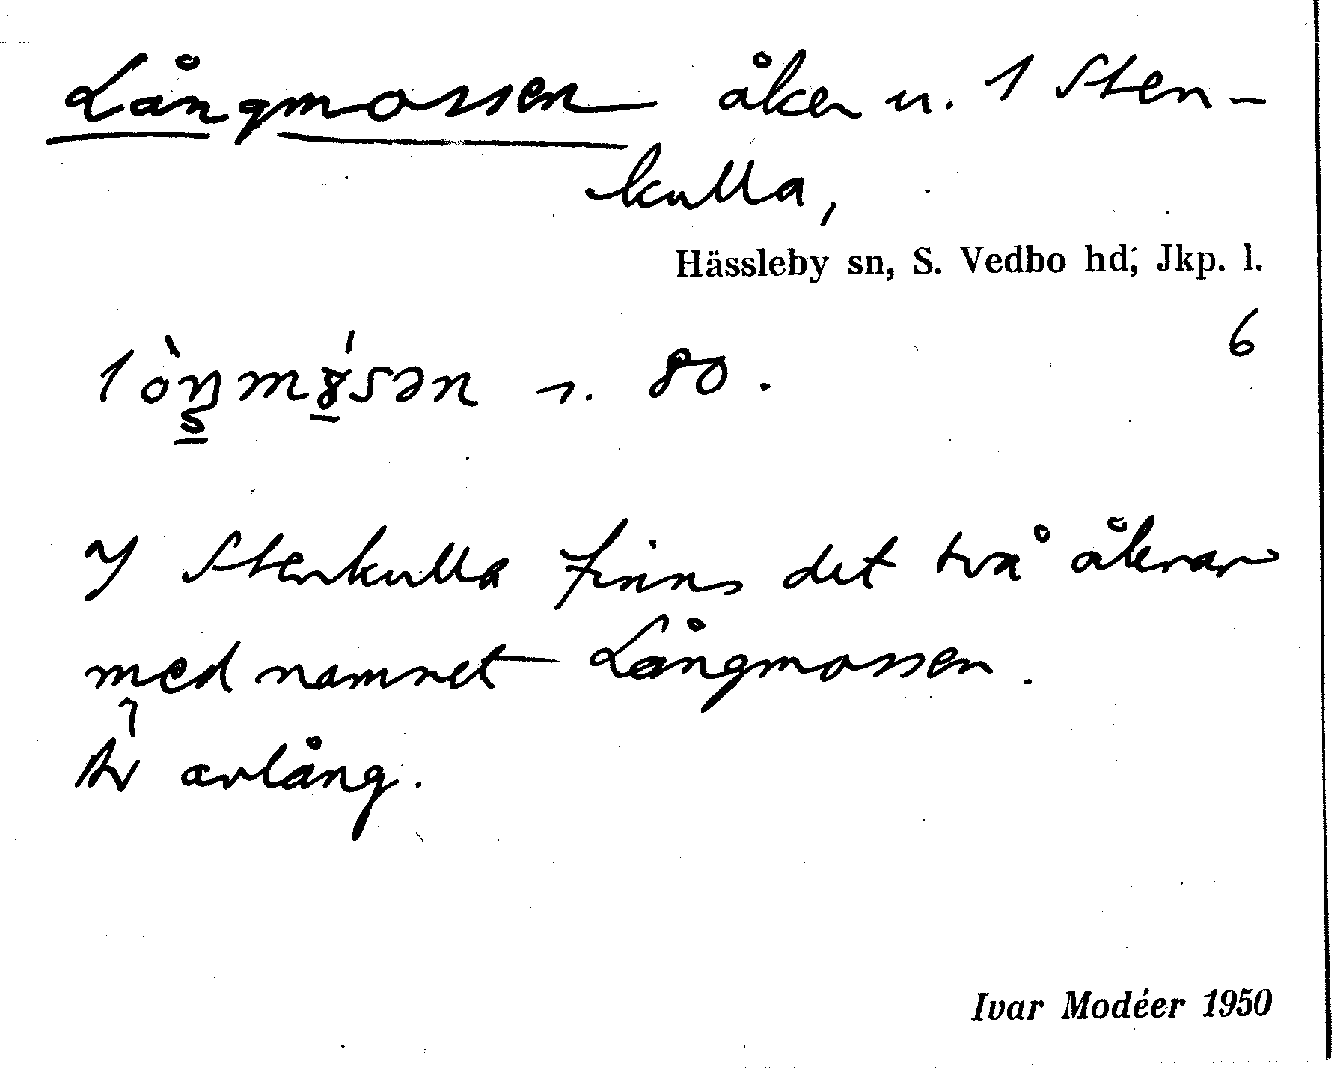 Långmossen åker n. 1 Sten-
kulla,
Hässleby sn, S. Vedbo hd; Jkp. l.
6
lòŋmɤ́sən s. 80.
I Stenkulla finns det två åkrar
med namnet Långmossen.
Är avlång.
Ivar Modéer 1950